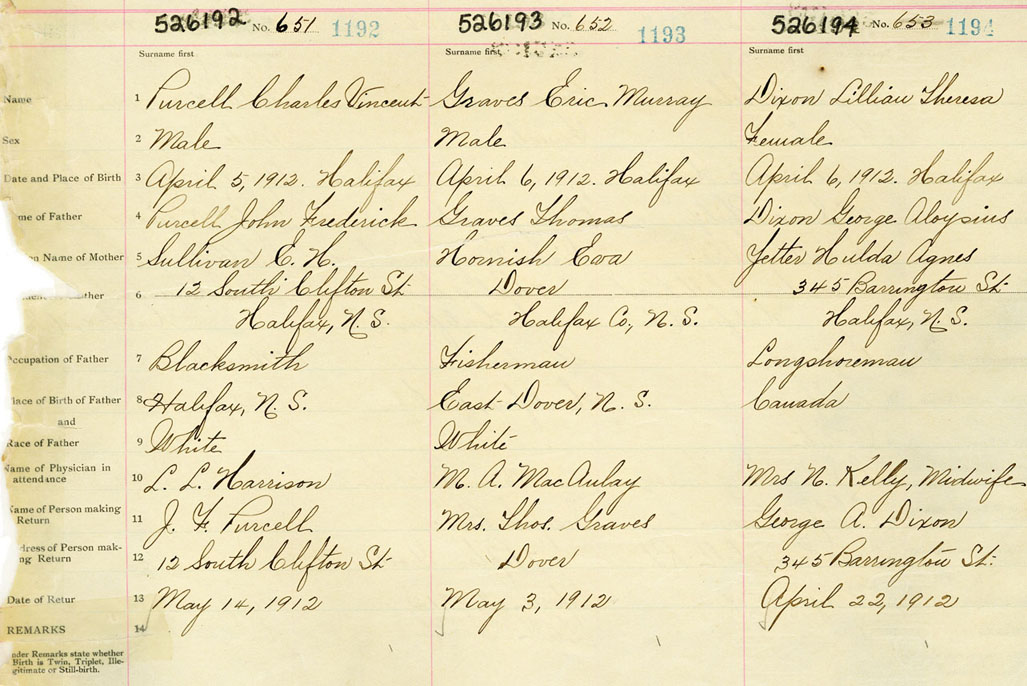 526192 No. 651 1192 526193 No. 652 1193 526194 No. 653 1194
Surname first Surname first Surname first
Name 1 Purcell Charles Vincent Graves Eric Murray Dixon Lillian Theresa
Sex 2 Male Male Female
Date and Place of Birth 3 April 5, 1912. Halifax April 6, 1912. Halifax April 6, 1912. Halifax
me of Father 4 Purcell John Frederick Graves Thomas Dixon George Aloysius
n Name of Mother 5 Sullivan E. H. Hornish Eva Yetter Hulda Agnes
6 12 South Clifton St. Dover 345 Barrington St.
Halifax, N.S. Halifax Co, N.S. Halifax, N.S.
Occupation of Father 7 Blacksmith Fisherman Longshoreman
lace of Birth of Father 8 Halifax, N.S. East Dover, N.S. Canada
and
Race of Father 9 White White
Name of Physician in attendance 10 L. L. Harrison M. A. MacAulay Mrs N. Kelly, Midwife
Name of Person making Return 11 J. F. Purcell Mrs. Thos. Graves George A. Dixon
dress of Person mak-
ng Return 12 12 South Clifton St. Dover 345 Barrington St.
Date of Retur 13 May 14, 1912 May 3, 1912 April 22, 1912
REMARKS 14
nder Remarks state whether
Birth is Twin, Triplet, Ille-
gitimate or Still-birth.